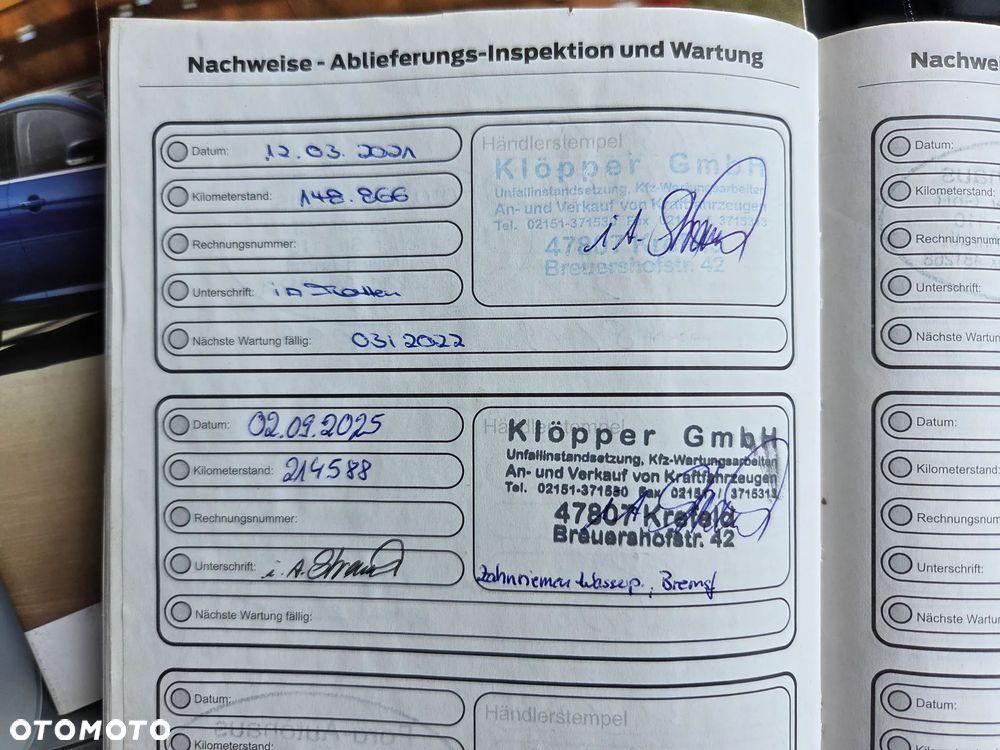 Nachweise - Ablieferungs-Inspektion und Wartung
Datum: 12.03.2021
Kilometerstand: 148.866
Rechnungsnummer:
Unterschrift: iA
Nächste Wartung fällig: 03i2022
Händlerstempel
Klöpper GmbH
Unfallinstandsetzung, Kfz-Wartungsarbeiten
An- und Verkauf von Kraftfahrzeugen
Tel. 02151-371530 Fax 02151 3715313
47807
Breuershofstr. 42
i.A.
Datum: 02.09.2025
Kilometerstand: 214588
Rechnungsnummer:
Unterschrift: i.A.
Nächste Wartung fällig:
Händlerstempel
Klöpper GmbH
Unfallinstandsetzung, Kfz-Wartungsarbeiten
An- und Verkauf von Kraftfahrzeugen
Tel. 02151-371530 Fax 02151 3715313
47807 Krefeld
Breuershofstr. 42
Zahnriemen Wasserp., Bremsf
Datum:
Kilometerstand:
Händlerstempel
Nachwei
Datum:
Kilometerstand:
Rechnungsnum
Unterschrift:
Nächste Wartun
Datum:
Kilometerstand:
Rechnungsnum
Unterschrift:
Nächste Wartu
Datum:
OTOMOTO